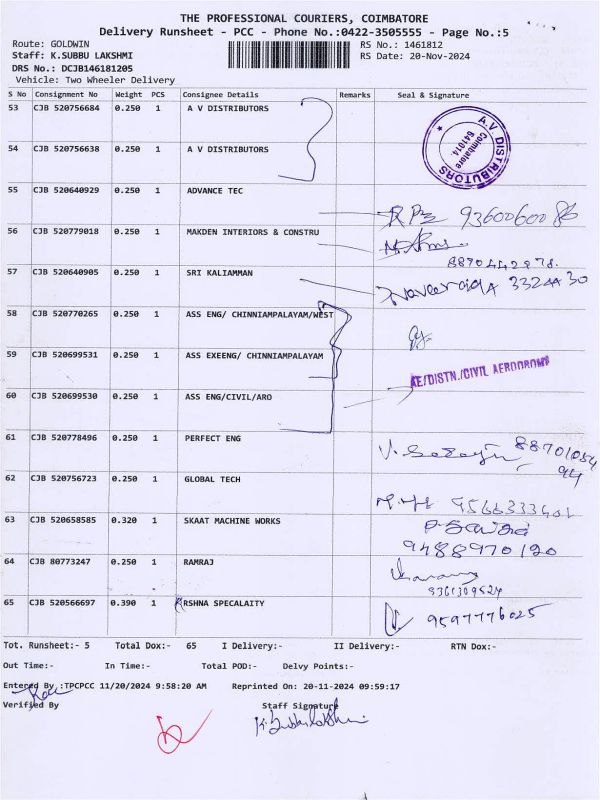 THE PROFESSIONAL COURIERS, COIMBATORE
Delivery Runsheet - PCC - Phone No.:0422-3505555 - Page No.:5
Route: GOLDWIN
RS No.: 1461812
Staff: K.SUBBU LAKSHMI
RS Date: 20-Nov-2024
DRS No.: DCJB146181205
Vehicle: Two Wheeler Delivery
S No Consignment No Weight PCS Consignee Details Remarks Seal & Signature
53 CJB 520756684 0.250 1 A V DISTRIBUTORS
A.V. DISTRIBUTORS
Coimbatore
641014.
54 CJB 520756638 0.250 1 A V DISTRIBUTORS
55 CJB 520640929 0.250 1 ADVANCE TEC
9360060086
56 CJB 520779018 0.250 1 MAKDEN INTERIORS & CONSTRU
57 CJB 520640905 0.250 1 SRI KALIAMMAN
58 CJB 520770265 0.250 1 ASS ENG/ CHINNIAMPALAYAM/WEST
59 CJB 520699531 0.250 1 ASS EXEENG/ CHINNIAMPALAYAM
AE/DISTN./CIVIL AERODROME
60 CJB 520699530 0.250 1 ASS ENG/CIVIL/ARO
61 CJB 520778496 0.250 1 PERFECT ENG
62 CJB 520756723 0.250 1 GLOBAL TECH
9566333401
63 CJB 520658585 0.320 1 SKAAT MACHINE WORKS
9488970120
64 CJB 80773247 0.250 1 RAMRAJ
65 CJB 520566697 0.390 1 KRSHNA SPECALAITY
9597776025
Tot. Runsheet:- 5 Total Dox:- 65 I Delivery:- II Delivery:- RTN Dox:-
Out Time:- In Time:- Total POD:- Delvy Points:-
Entered By :TPCPCC 11/20/2024 9:58:20 AM Reprinted On: 20-11-2024 09:59:17
Verified By Staff Signature
K. Subbulakshmi